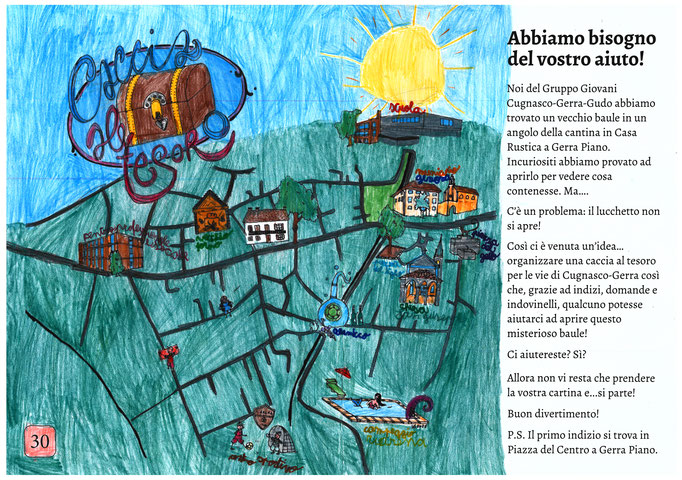 Caccia
al
tesoro
scuola
30
Abbiamo bisogno
del vostro aiuto!
Noi del Gruppo Giovani
Cugnasco-Gerra-Gudo abbiamo
trovato un vecchio baule in un
angolo della cantina in Casa
Rustica a Gerra Piano.
Incuriositi abbiamo provato ad
aprirlo per vedere cosa
contenesse. Ma....
C'è un problema: il lucchetto non
si apre!
Così ci è venuta un'idea...
organizzare una caccia al tesoro
per le vie di Cugnasco-Gerra così
che, grazie ad indizi, domande e
indovinelli, qualcuno potesse
aiutarci ad aprire questo
misterioso baule!
Ci aiutereste? Sì?
Allora non vi resta che prendere
la vostra cartina e...si parte!
Buon divertimento!
P.S. Il primo indizio si trova in
Piazza del Centro a Gerra Piano.